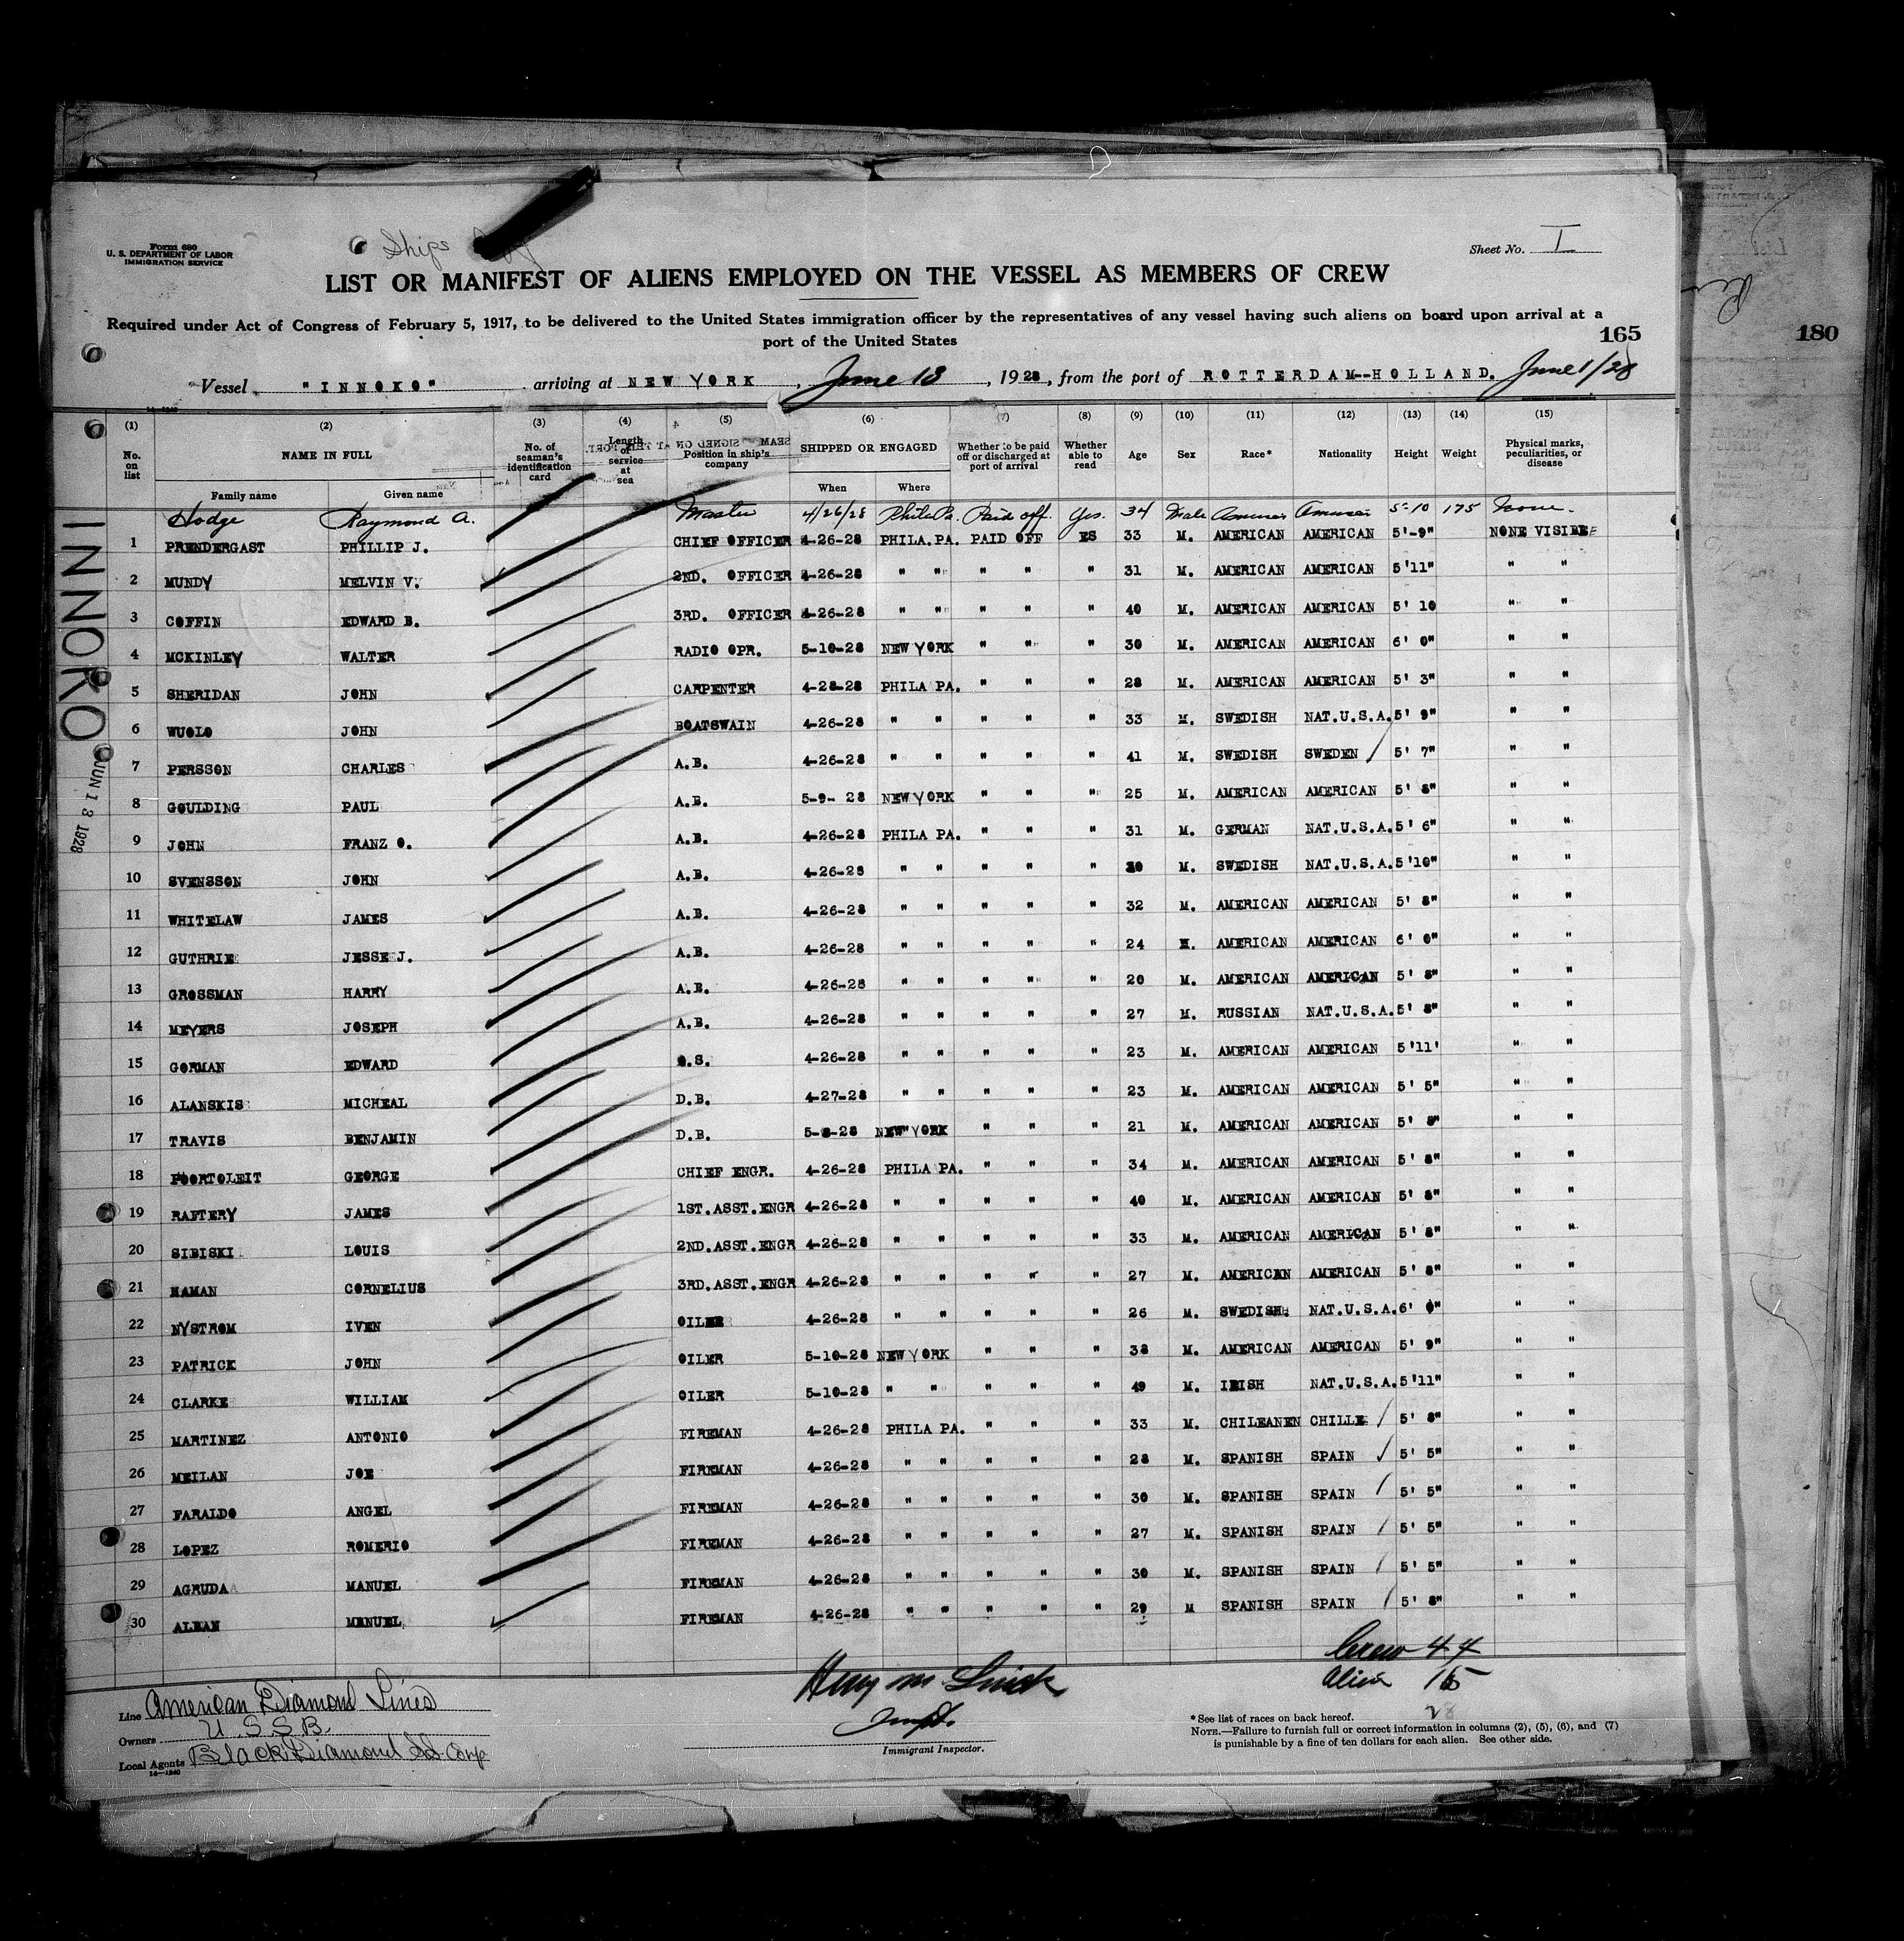 Form 680
U. S. DEPARTMENT OF LABOR
IMMIGRATION SERVICE
Ships
Sheet No. I
LIST OR MANIFEST OF ALIENS EMPLOYED ON THE VESSEL AS MEMBERS OF CREW
Required under Act of Congress of February 5, 1917, to be delivered to the United States immigration officer by the representatives of any vessel having such aliens on board upon arrival at a
port of the United States
165
180
Vessel "INNOKO" arriving at NEW YORK, June 13, 1928, from the port of ROTTERDAM--HOLLAND. June 1/28
(1) (2) (3) (4) (5) (6) (7) (8) (9) (10) (11) (12) (13) (14) (15)
No. on list NAME IN FULL No. of seaman's identification card Length of service at sea Position in ship's company SHIPPED OR ENGAGED Whether to be paid off or discharged at port of arrival Whether able to read Age Sex Race* Nationality Height Weight Physical marks, peculiarities, or disease
Family name Given name When Where
Hodge Raymond A. Master 4/26/28 Phila Pa. Paid off. Yes. 34 Male 5-10 175 None.
1 PRENDERGAST PHILLIP J. CHIEF OFFICER 4-26-28 PHILA.PA. PAID OFF ES 33 M. AMERICAN AMERICAN 5'-9" NONE VISIBLE
2 MUNDY MELVIN V. 2ND. OFFICER 4-26-28 " " " " " 31 M. AMERICAN AMERICAN 5'11" " "
3 COFFIN EDWARD B. 3RD. OFFICER 4-26-28 " " " " " 40 M. AMERICAN AMERICAN 5' 10 " "
4 MCKINLEY WALTER RADIO OPR. 5-10-28 NEW YORK " " " 30 M. AMERICAN AMERICAN 6' 0" " "
5 SHERIDAN JOHN CARPENTER 4-28-28 PHILA PA. " " " 28 M. AMERICAN AMERICAN 5' 3" " "
6 WUOLO JOHN BOATSWAIN 4-26-28 " " " " " 33 M. SWEDISH NAT.U.S.A. 5' 9" " "
7 PERSSON CHARLES A.B. 4-26-28 " " " " " 41 M. SWEDISH SWEDEN / 5' 7" " "
8 GOULDING PAUL A.B. 5-9- 28 NEW YORK " " " 25 M. AMERICAN AMERICAN 5' 8" " "
9 JOHN FRANZ O. A.B. 4-26-28 PHILA PA. " " " 31 M. GERMAN NAT.U.S.A. 5' 6" " "
10 SVENSSON JOHN A.B. 4-26-28 " " " " " M. SWEDISH NAT.U.S.A. 5'10" " "
11 WHITELAW JAMES A.B. 4-26-28 " " " " " 32 M. AMERICAN AMERICAN 5' 8" " "
12 GUTHRIE JESSE J. A.B. 4-26-28 " " " " " 24 M. AMERICAN AMERICAN 6' 0" " "
13 GROSSMAN HARRY A.B. 4-26-28 " " " " " 20 M. AMERICAN AMERICAN 5' 8" " "
14 MEYERS JOSEPH A.B. 4-26-28 " " " " " 27 M. RUSSIAN NAT.U.S.A. 5' 8" " "
15 GORMAN EDWARD O.S. 4-26-28 " " " " " 23 M. AMERICAN AMERICAN 5'11' " "
16 ALANSKIS MICHEAL D.B. 4-27-28 " " " " " 23 M. AMERICAN AMERICAN 5' 5" " "
17 TRAVIS BENJAMIN D.B. 5-8-28 NEW YORK " " " 21 M. AMERICAN AMERICAN 5' 8" " "
18 POORTOLEIT GEORGE CHIEF ENGR. 4-26-28 PHILA PA. " " " 34 M. AMERICAN AMERICAN 5' 8" " "
19 RAFTERY JAMES 1ST.ASST.ENGR 4-26-28 " " " " " 40 M. AMERICAN AMERICAN 5' 8" " "
20 SIBISKI LOUIS 2ND.ASST.ENGR 4-26-28 " " " " " 33 M. AMERICAN AMERICAN 5' 8" " "
21 HAMAN CORNELIUS 3RD.ASST.ENGR 4-26-28 " " " " " 27 M. AMERICAN AMERICAN 5' 8" " "
22 NYSTROM IVEN OILER 4-26-28 " " " " " 26 M. SWEDISH NAT.U.S.A. 6' 0" " "
23 PATRICK JOHN OILER 5-10-28 NEW YORK " " " 38 M. AMERICAN AMERICAN 5' 9" " "
24 CLARKE WILLIAM OILER 5-10-28 " " " " " 49 M. IRISH NAT.U.S.A. 5'11" " "
25 MARTINEZ ANTONIO FIREMAN 4-26-28 PHILA PA. " " " 33 M. CHILEANEN CHILLE / 5' 8" " "
26 MEILAN JOE FIREMAN 4-26-28 " " " " " 28 M. SPANISH SPAIN / 5' 5" " "
27 FARALDO ANGEL FIREMAN 4-26-28 " " " " " 30 M. SPANISH SPAIN / 5' 5" " "
28 LOPEZ ROMERIO FIREMAN 4-26-28 " " " " " 27 M. SPANISH SPAIN / 5' 5" " "
29 AGRUDA MANUEL FIREMAN 4-26-28 " " " " " 30 M. SPANISH SPAIN / 5' 5" " "
30 ALBAN MANUEL FIREMAN 4-26-28 " " " " " 29 M SPANISH SPAIN / 5' 8" " "
INNORO
JUN 13 1928
Crew 44
Alien 15
28
Line American Diamond Lines
Owners U.S.S.B.
Local Agents Black Diamond SS Corp
Immigrant Inspector.
*See list of races on back hereof.
NOTE.—Failure to furnish full or correct information in columns (2), (5), (6), and (7)
is punishable by a fine of ten dollars for each alien. See other side.